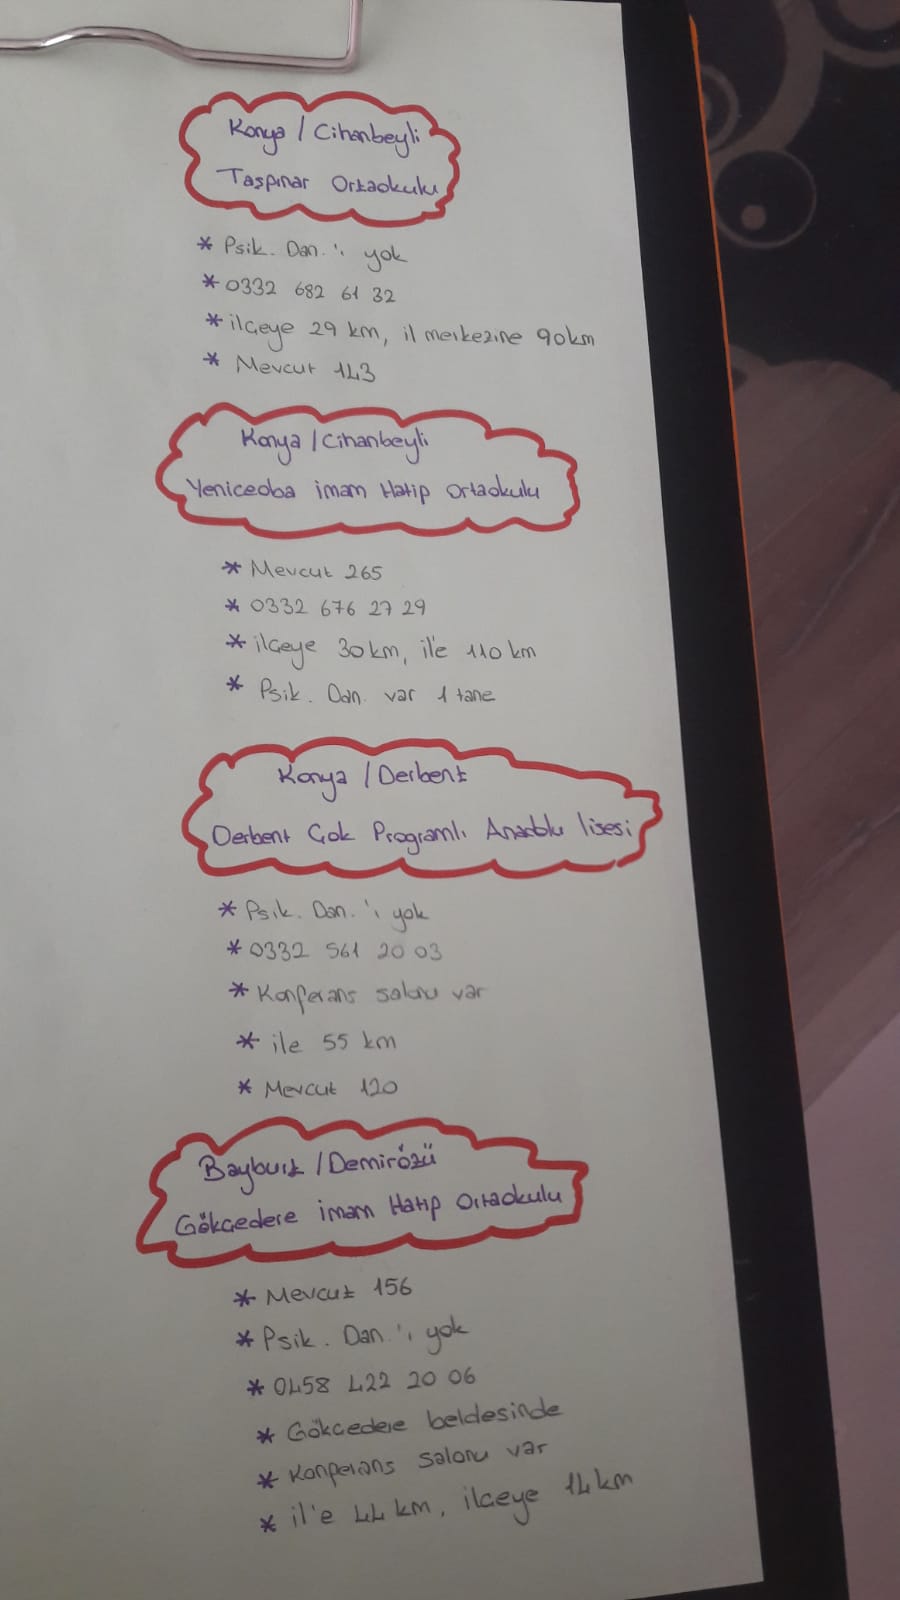 Konya / Cihanbeyli
Taşpınar Ortaokulu
* Psik. Dan.'ı yok
* 0332 682 61 32
* ilçeye 29 km, il merkezine 90km
* Mevcut 143
Konya / Cihanbeyli
Yeniceoba imam Hatip Ortaokulu
* Mevcut 265
* 0332 676 27 29
* ilçeye 30km, il'e 110 km
* Psik. Dan. var 1 tane
Konya / Derbent
Derbent Çok Programlı Anadolu lisesi
* Psik. Dan.'ı yok
* 0332 561 20 03
* Konferans salonu var
* ile 55 km
* Mevcut 120
Bayburt / Demirözü
Gökçedere imam Hatip Ortaokulu
* Mevcut 156
* Psik. Dan.'ı yok
* 0458 422 20 06
* Gökçedere beldesinde
* Konferans salonu var
* il'e 44 km, ilçeye 14 km